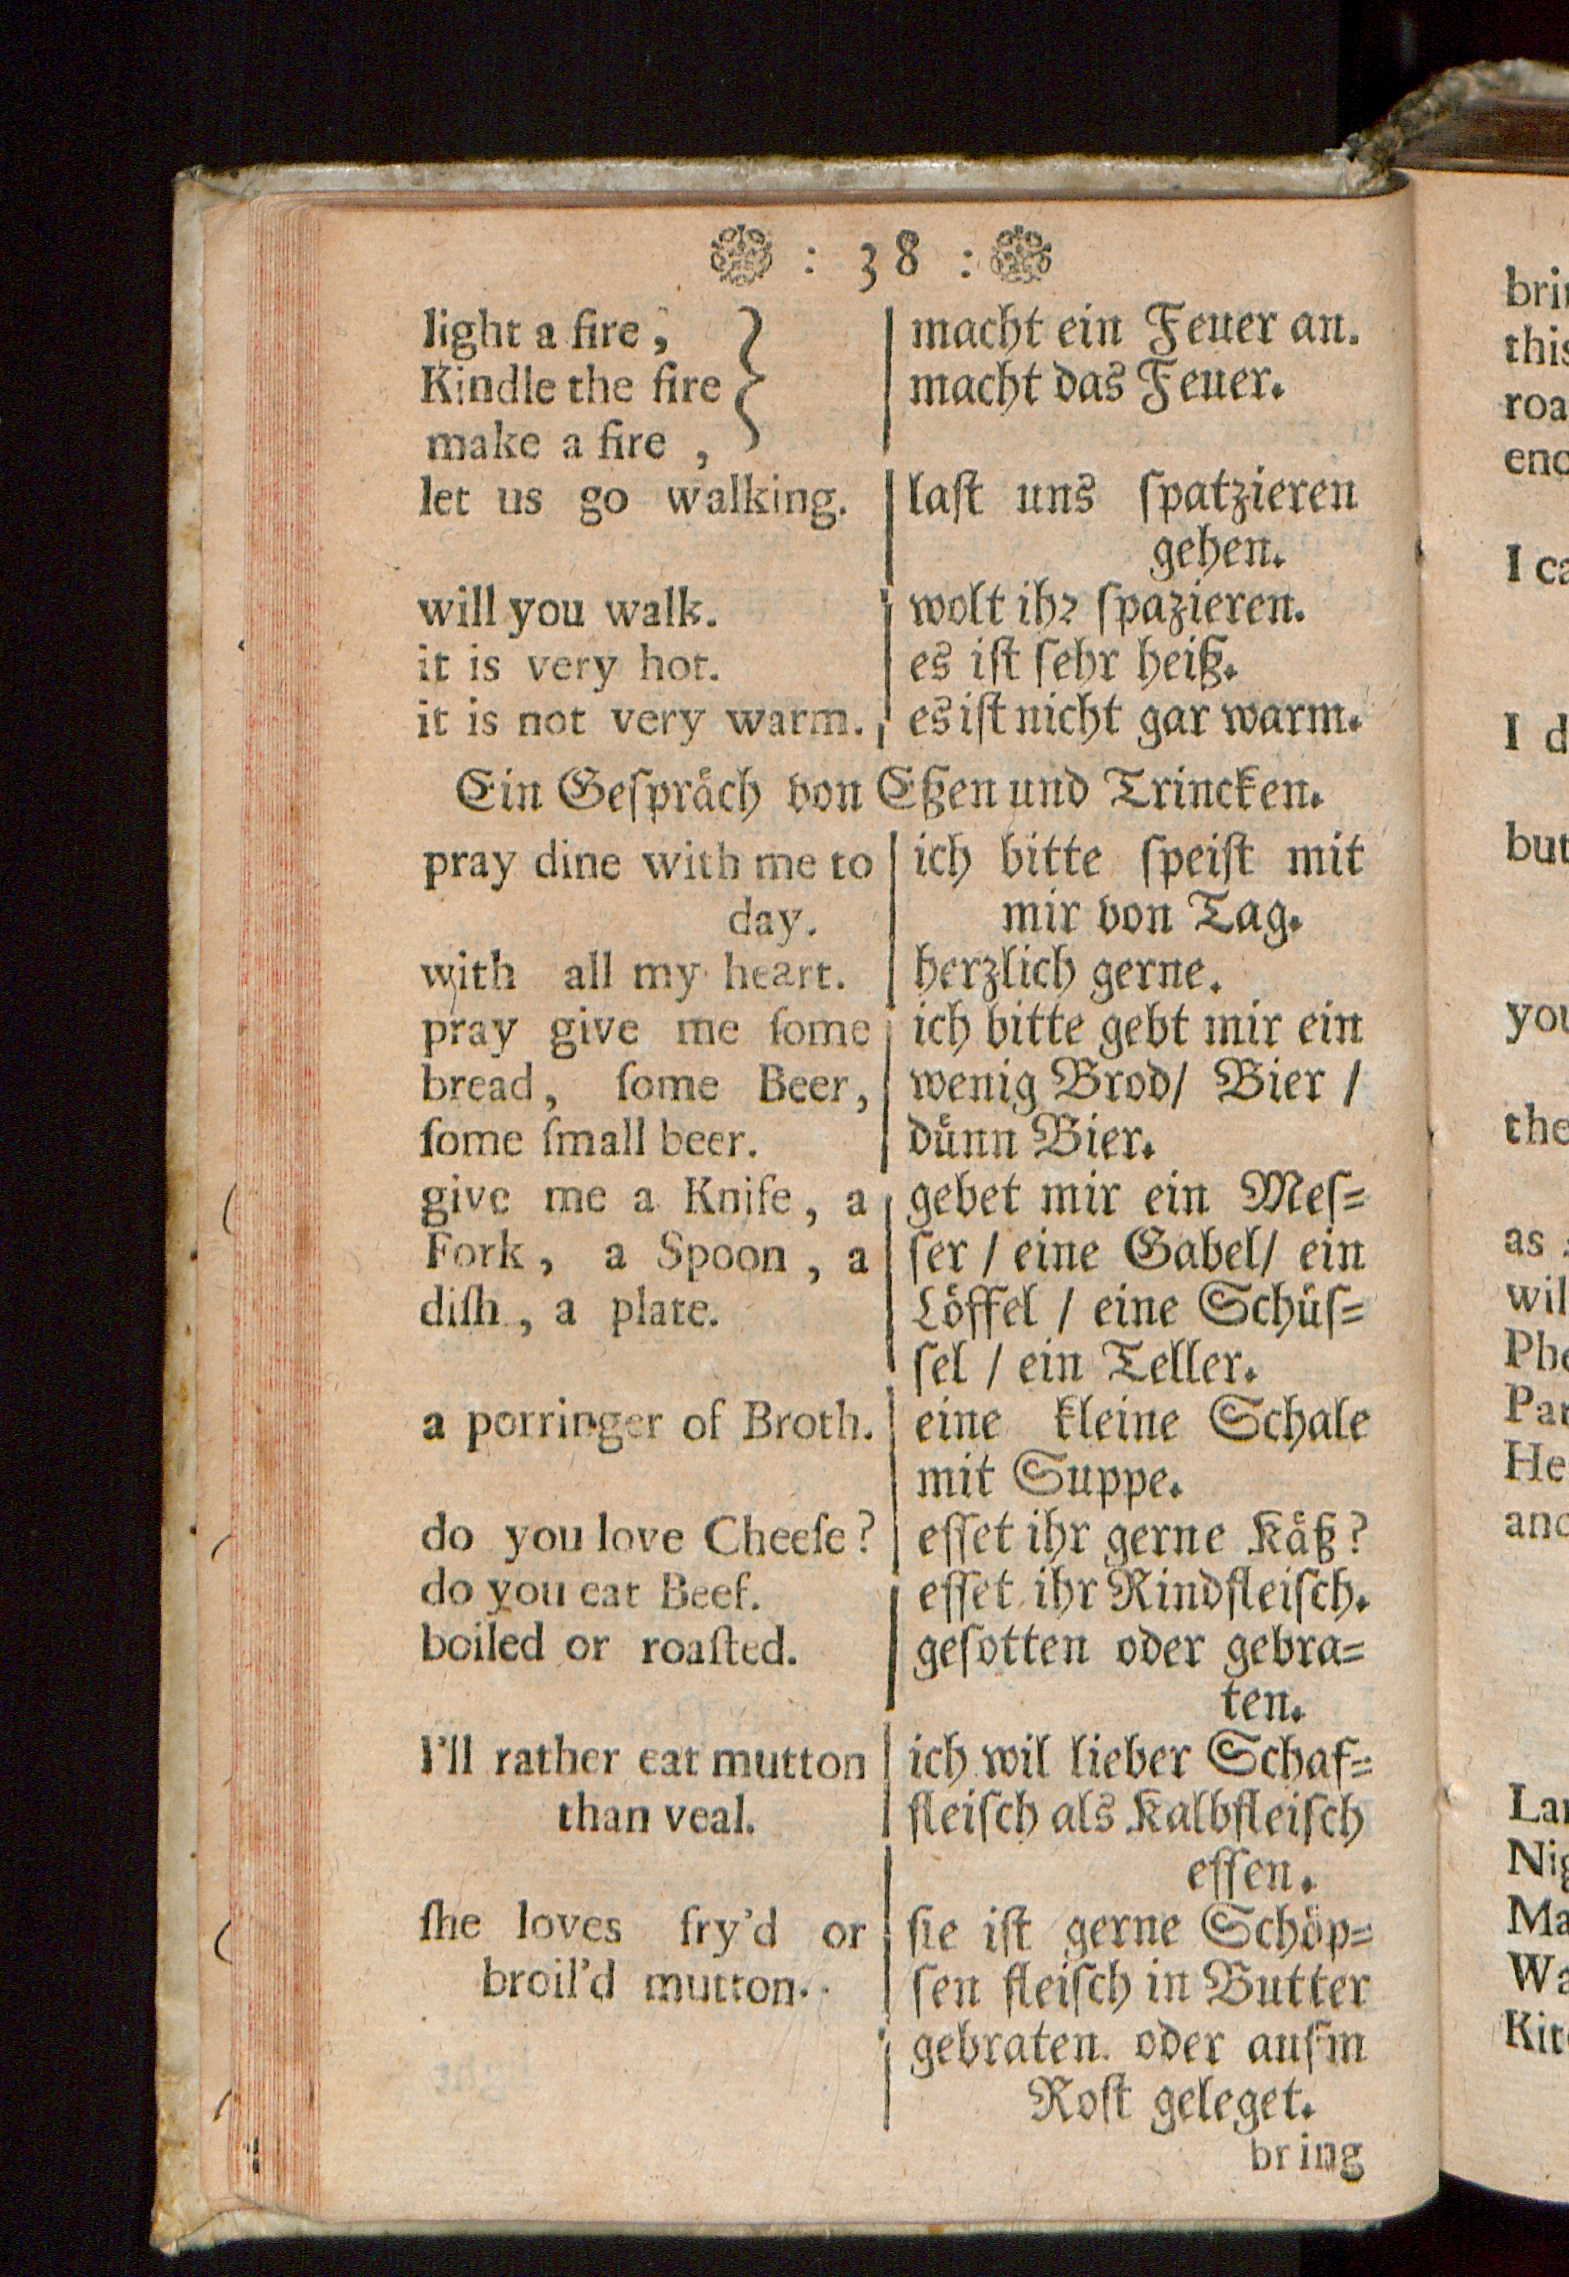 : 38 :
light a fire,
Kindle the fire
make a fire ,
let us go walking.
will you walk.
it is very hot.
it is not very warm.
macht ein Feuer an.
macht das Feuer.
laſt uns ſpatzieren
gehen.
wolt ihr ſpazieren.
es iſt ſehr heiß.
es iſt nicht gar warm.
Ein Geſpräch von Eßen und Trincken.
pray dine with me to
day.
with all my heart.
pray give me ſome
bread, ſome Beer,
ſome ſmall beer.
give me a Knife, a
Fork, a Spoon, a
diſh, a plate.
a porringer of Broth.
do you love Cheeſe?
do you eat Beef.
boiled or roaſted.
I'll rather eat mutton
than veal.
ſhe loves fry'd or
broil'd mutton.
ich bitte ſpeiſt mit
mir von Tag.
herzlich gerne.
ich bitte gebt mir ein
wenig Brod/ Bier /
dünn Bier.
gebet mir ein Meſ-
ſer / eine Gabel/ ein
Löffel / eine Schüſ-
ſel / ein Teller.
eine kleine Schale
mit Suppe.
eſſet ihr gerne Käß?
eſſet ihr Rindfleiſch.
geſotten oder gebra-
ten.
ich wil lieber Schaf-
fleiſch als Kalbfleiſch
eſſen.
ſie iſt gerne Schöp-
ſen fleiſch in Butter
gebraten. oder aufm
Roſt geleget.
bring